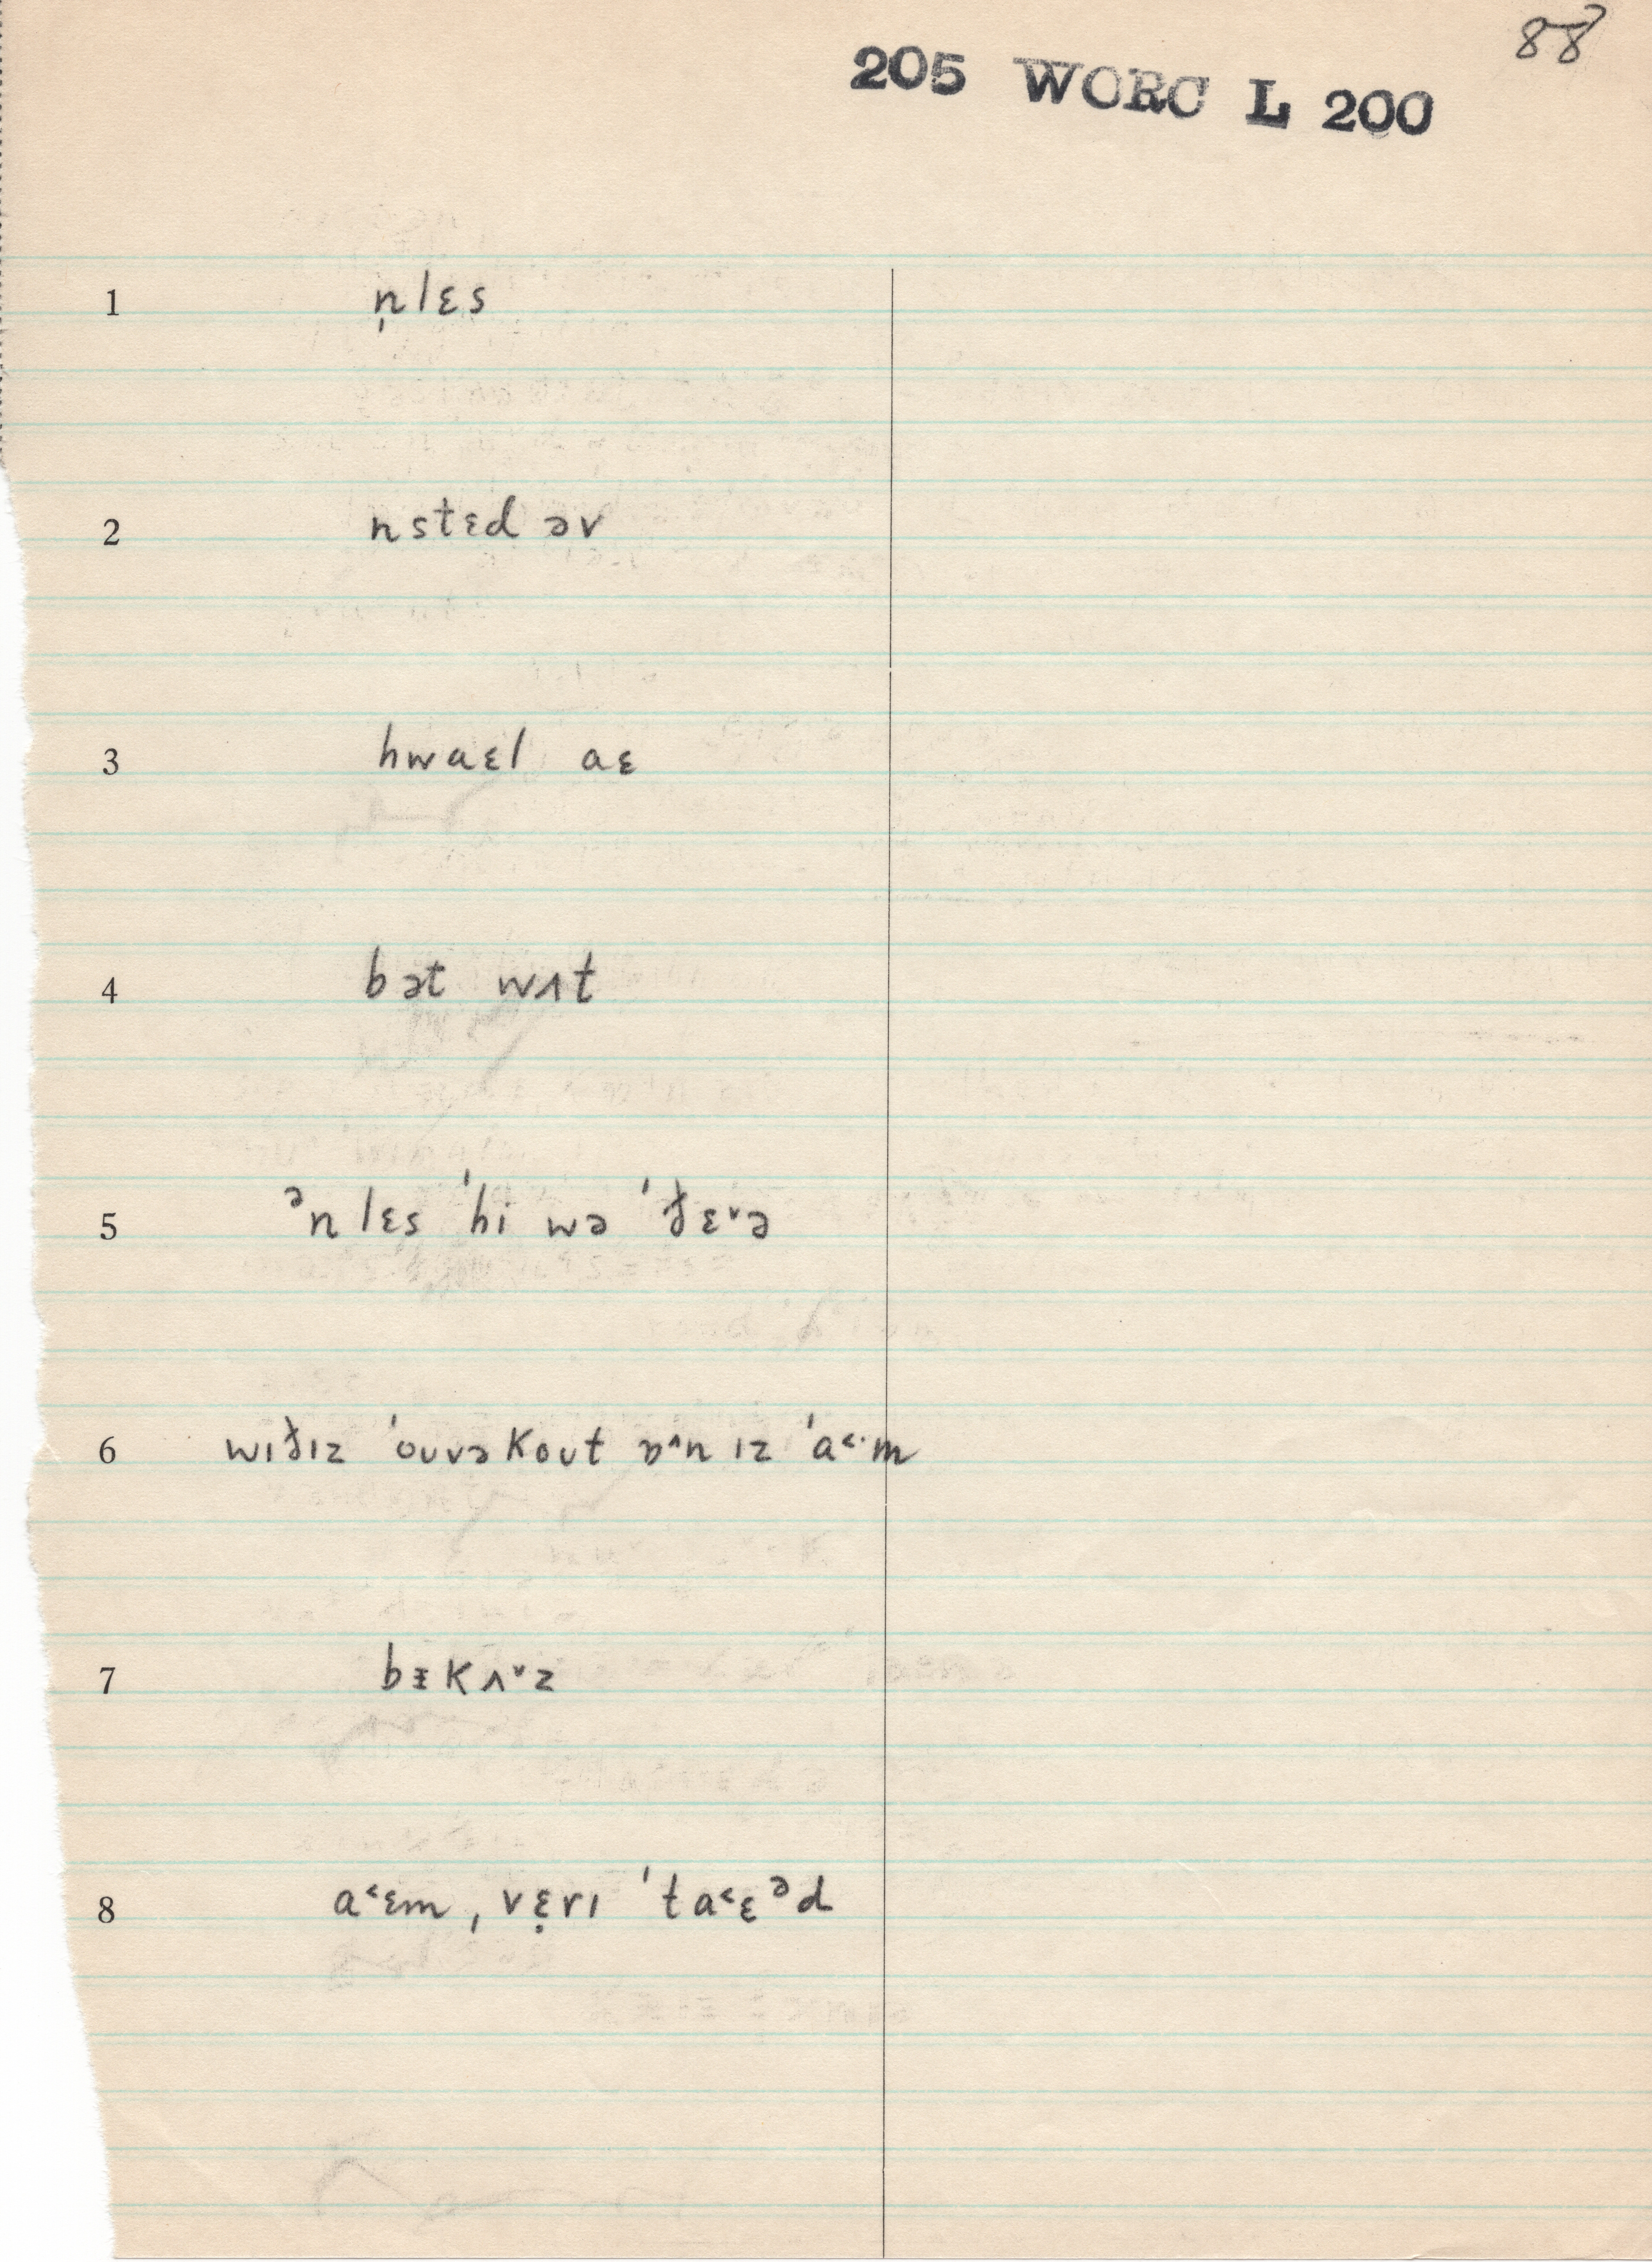 88
205 WORC L 200
1 n̩lɛs
2 nstɛd əv
3 hwaɛl aɛ
4 bət wʌt
5 ᵊnlɛs ˈhi wə ˈðɛ˅ə
6 wɪðɪz ˈouvəkout ɒ^n ɪz ˈa˂·m
7 bɪ̵kʌ˅z
8 a˂ɛm, vɛ̣rɪ ˈta˂ɛᵊd